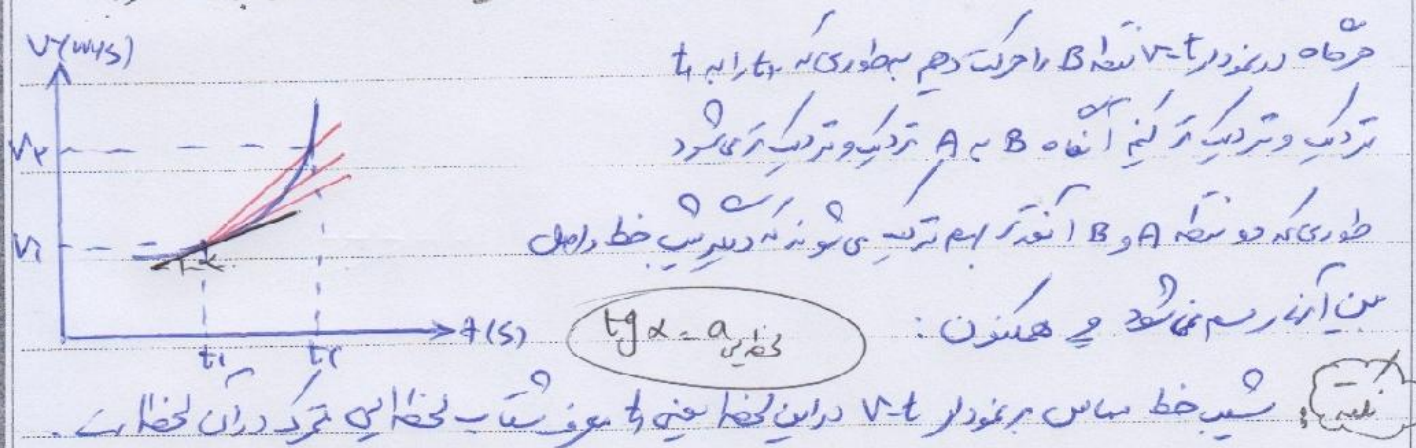 هرگاه در نمودار v-t نقطه B را حرکت دهیم به طوری که t₂ را به t₁
نزدیک و نزدیک تر کنیم آنگاه B به A نزدیک و نزدیک تر می شود
طوری که دو نقطه A و B آنقدر بهم نزدیک می شوند که دیگر شیب خط واصل
بین آن‌ها رسم نمی شود و همکنون :
tg α = a لحظه‌ایی
نکته: شیب خط مماس بر نمودار v-t در این لحظه یعنی t₁ معرف شتاب لحظه ایی متحرک در آن لحظه است.
V(m/s)
V₂
V₁
α
t₁ t₂
t(s)